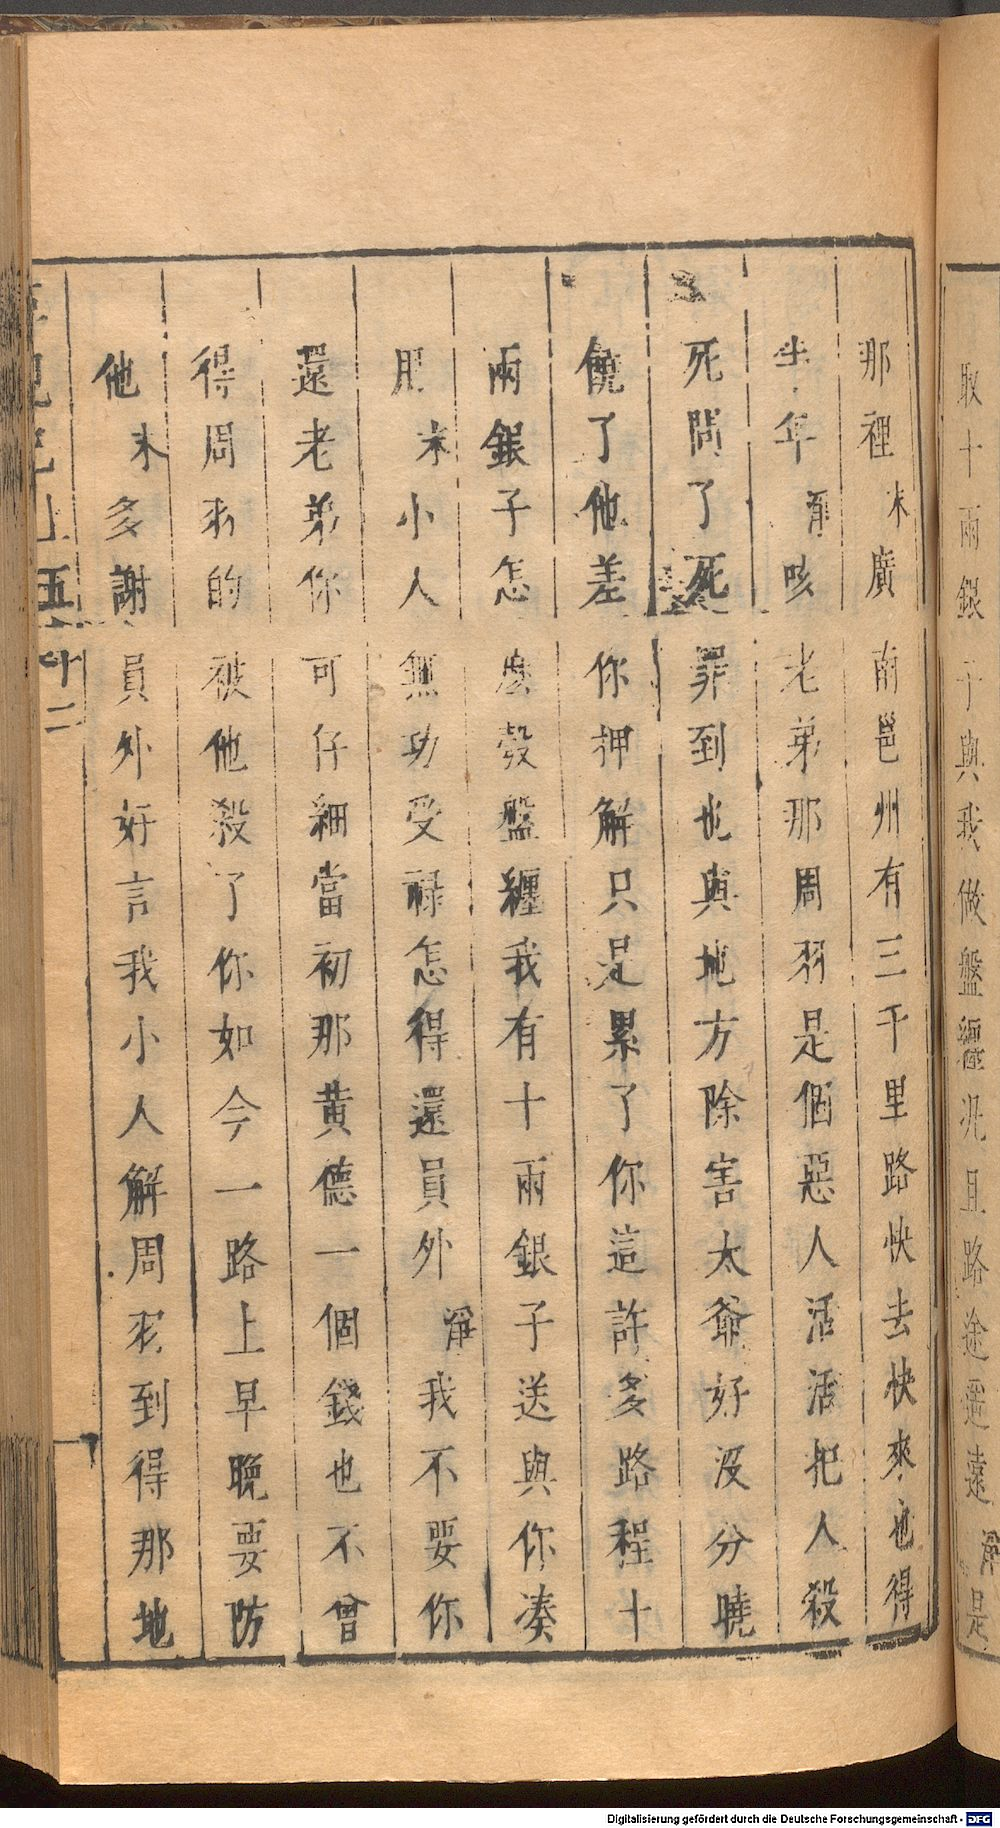 取十兩銀子與我做盤纏况且路途遥遠淨是
那裡末廣南邕州有三千里路快去快來也得
半年淨咳老弟那周羽是個惡人活活把人殺
死問了死罪到也與地方除害太爺好沒分曉
饒了他差你押解只是累了你這許多路程十
兩銀子怎麽彀盤纏我有十兩銀子送與你凑
用末小人無功受祿怎得還員外淨我不要你
還老弟你可仔細當初那黄德一個錢也不曾
得周羽的被他殺了你如今一路上早晚要防
他末多謝員外好言我小人解周羽到得那地
五
十二
Digitalisierung gefördert durch die Deutsche Forschungsgemeinschaft - DFG